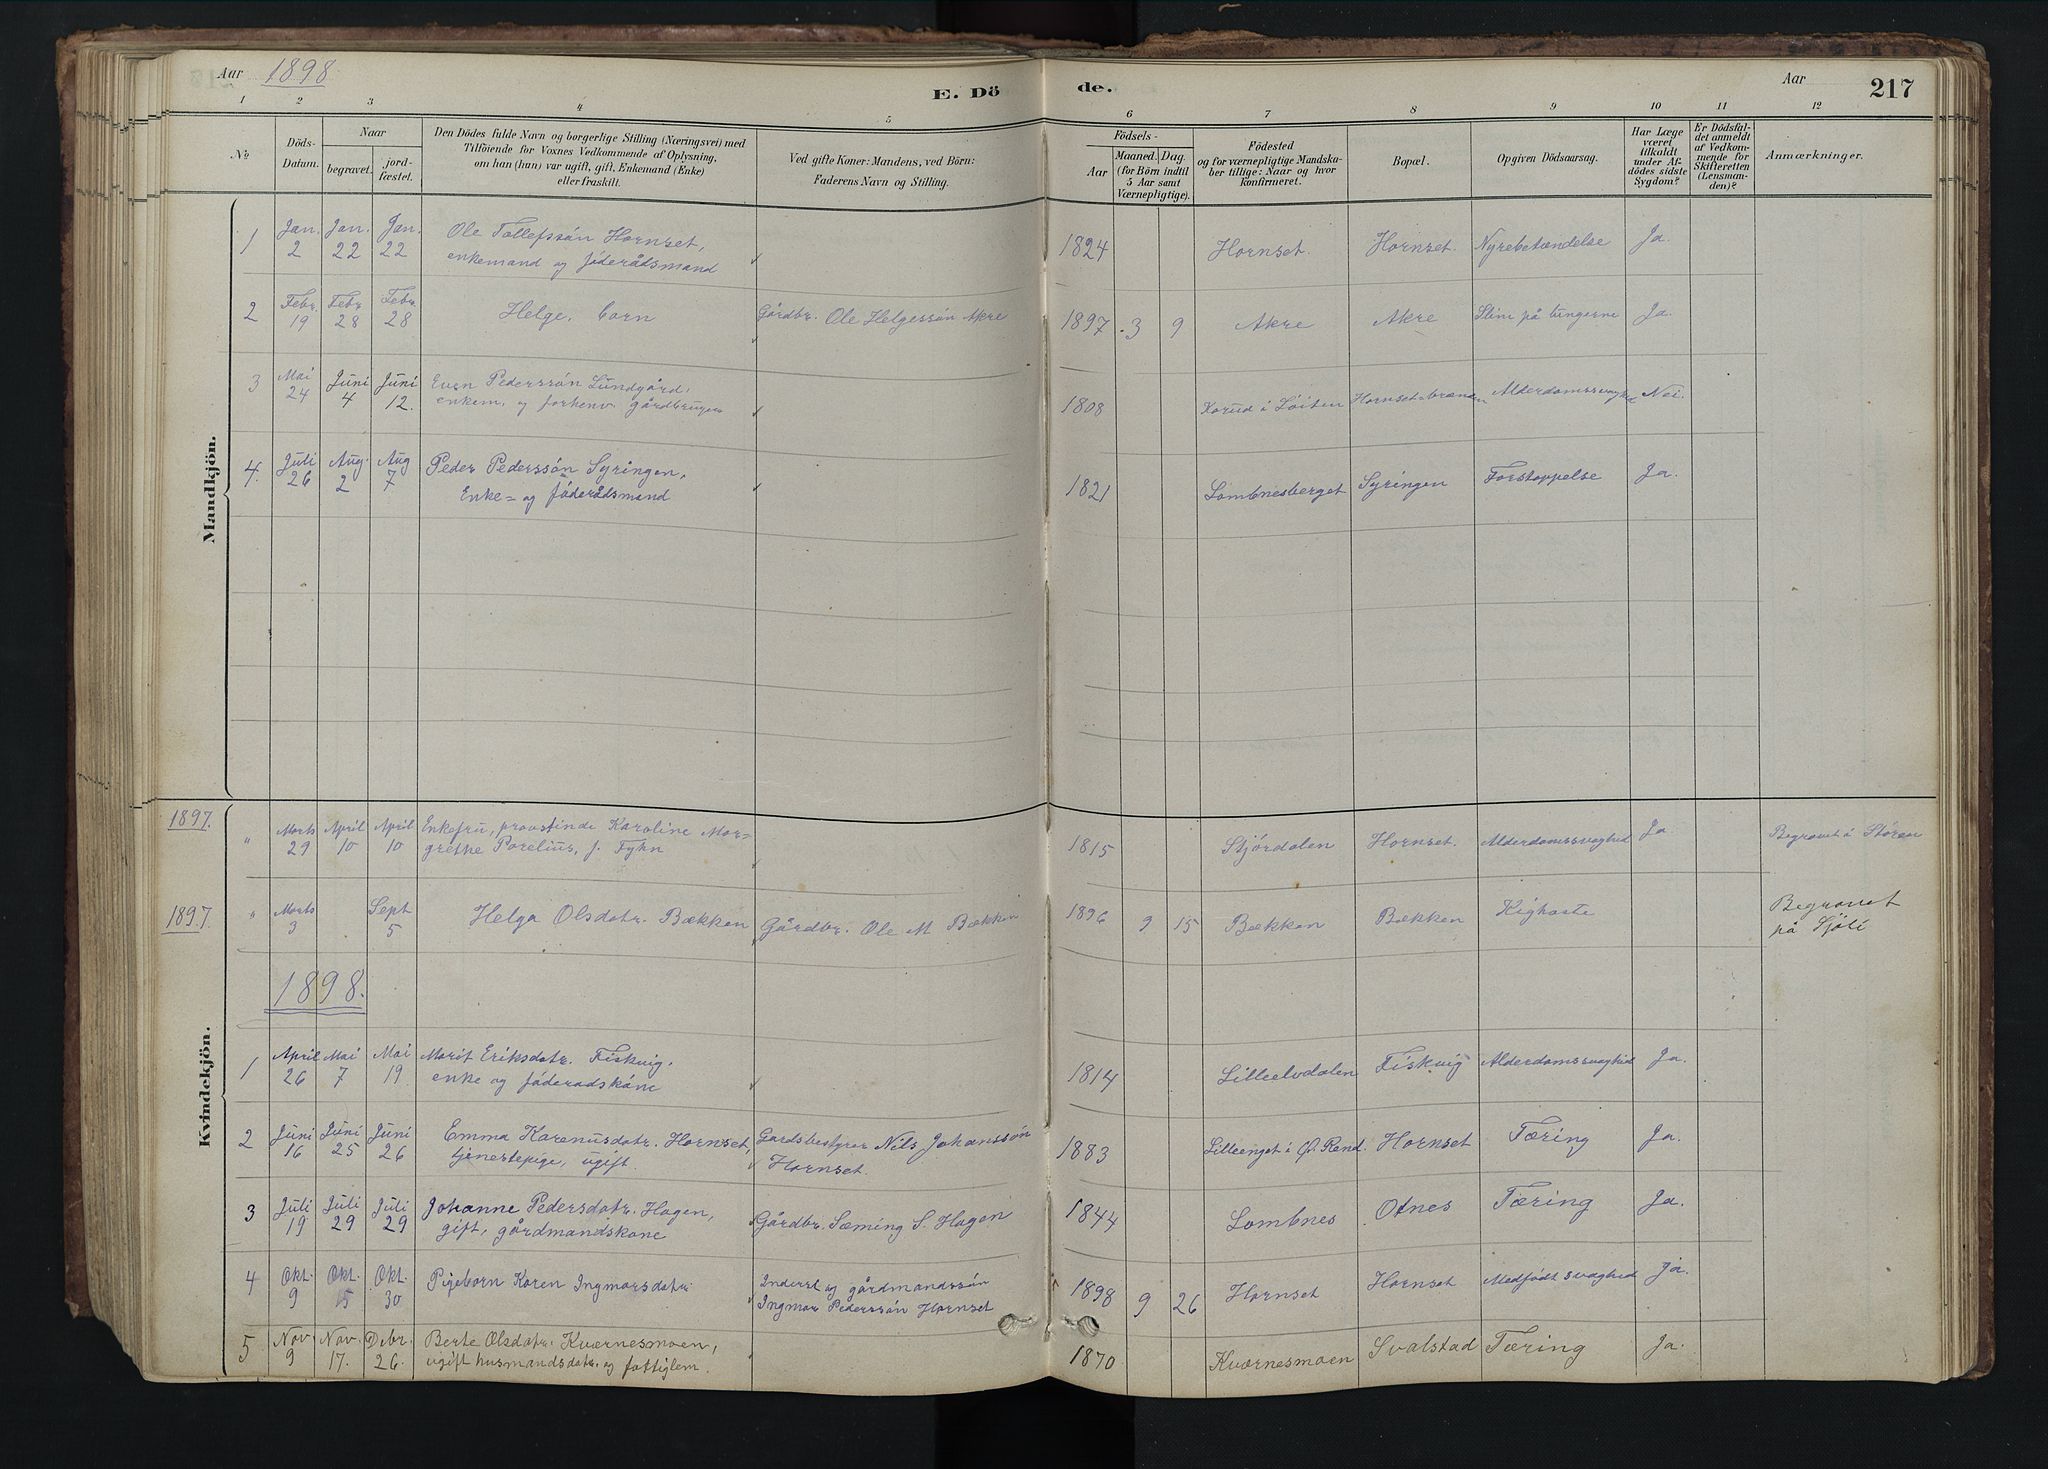 Aar 1898.
E. Dö
de.
Aar
217
1 2 3 4 5 6 7 8 9 10 11 12
No
Döds-
Datum.
Naar
begravet.
jord-
fæstet.
Den Dödes fulde Navn og borgerlige Stilling (Næringsvei) med
Tilföiende for Voxnes Vedkommende af Oplysning,
om han (hun) var ugift, gift, Enkemand (Enke)
eller fraskilt.
Ved gifte Koner: Mandens, ved Börn:
Faderens Navn og Stilling.
Födsels-
Aar
Maaned. Dag.
(for Börn indtil
5 Aar samt
Værnepligtige).
Födested
og for værnepligtige Mandska-
ber tillige: Naar og hvor
konfirmeret.
Bopæl.
Opgiven Dödsaarsag.
Har Læge
været
tilkaldt
under Af-
dödes sidste
Sygdom?
Er Dödsfal-
det anmeldt
af Vedkom-
mende for
Skifteretten
(Lensman-
den)?
Anmærkninger.
Mandkjön.
1 Jan. 2 Jan. 22 Jan. 22 Ole Tollefssön Hornset, 1824 Hornset. Hornset. Nyrebetændelse Ja.
enkemand og föderådsmand
2 Febr. 19 Febr 28 Febr. 28 Helge, barn Gårdbr. Ole Helgessön Akre 1897 3 9 Akre Akre Slim på lungerne Ja.
3 Mai 24 Juni 4 Juni 12. Even Pederssön Lundgård, 1808 Korud i Löiten Hornset Alderdomssvaghed Nei.
enkem. og forhenv. gårdbruger
4. Juli 26 Aug. 2 Aug 7 Peder Pederssön Syringen, 1821 Lombnesberget Syringen Forstoppelse Ja.
Enke- og föderådsmand
Kvindekjön.
1897. " Marts 29 April 10 April 10 Enkefru, provstinde Karoline Mar- 1815 Stjördalen Hornset. Alderdomssvaghed Ja Begravet i Stören
grethe Parelius, f.
1897. " Marts 3 Sept 5 Helga Olsdatr. Bækken Gårdbr. Ole M Bækken 1896 9 15 Bækken Bækken Kighoste Begravet
på Sjöli
1898.
1 April 26 Mai 7 Mai 19 Marit Eriksdatr. Fiskvig, 1814 Lilleelvdalen Fiskvig Alderdomssvaghed Ja.
enke og föderadskone
2 Juni 16 Juni 25 Juni 26 Emma Karenusdatr. Hornset, Gardsbestyrer Nils Johanssön 1883 Lilleenget i Ø. Rend. Hornset Tæring Ja.
tjenestepige, ugift. Hornset.
3 Juli 19 Juli 29 Juli 29 Johanne Pedersdatr. Hagen, Gårdbr. Sæming S. Hagen 1844 Lombnes Otnes Tæring Ja.
gift, gårdmandskone
4 Okt. 9 Okt. 15 Okt. 30 Pigebarn Karen Ingmarsdatr. Inderst og gårdmandssön 1898 9 26 Hornset Hornset Medfödt svaghed Ja.
Ingmar Pederssön Hornset
5 Nov 9 Nov. 17. Debr. 26. Berte Olsdatr. Kværnesmoen, 1870 Kværnesmoen Svalstad Tæring Ja.
ugift husmandsdatr. og fattiglem.